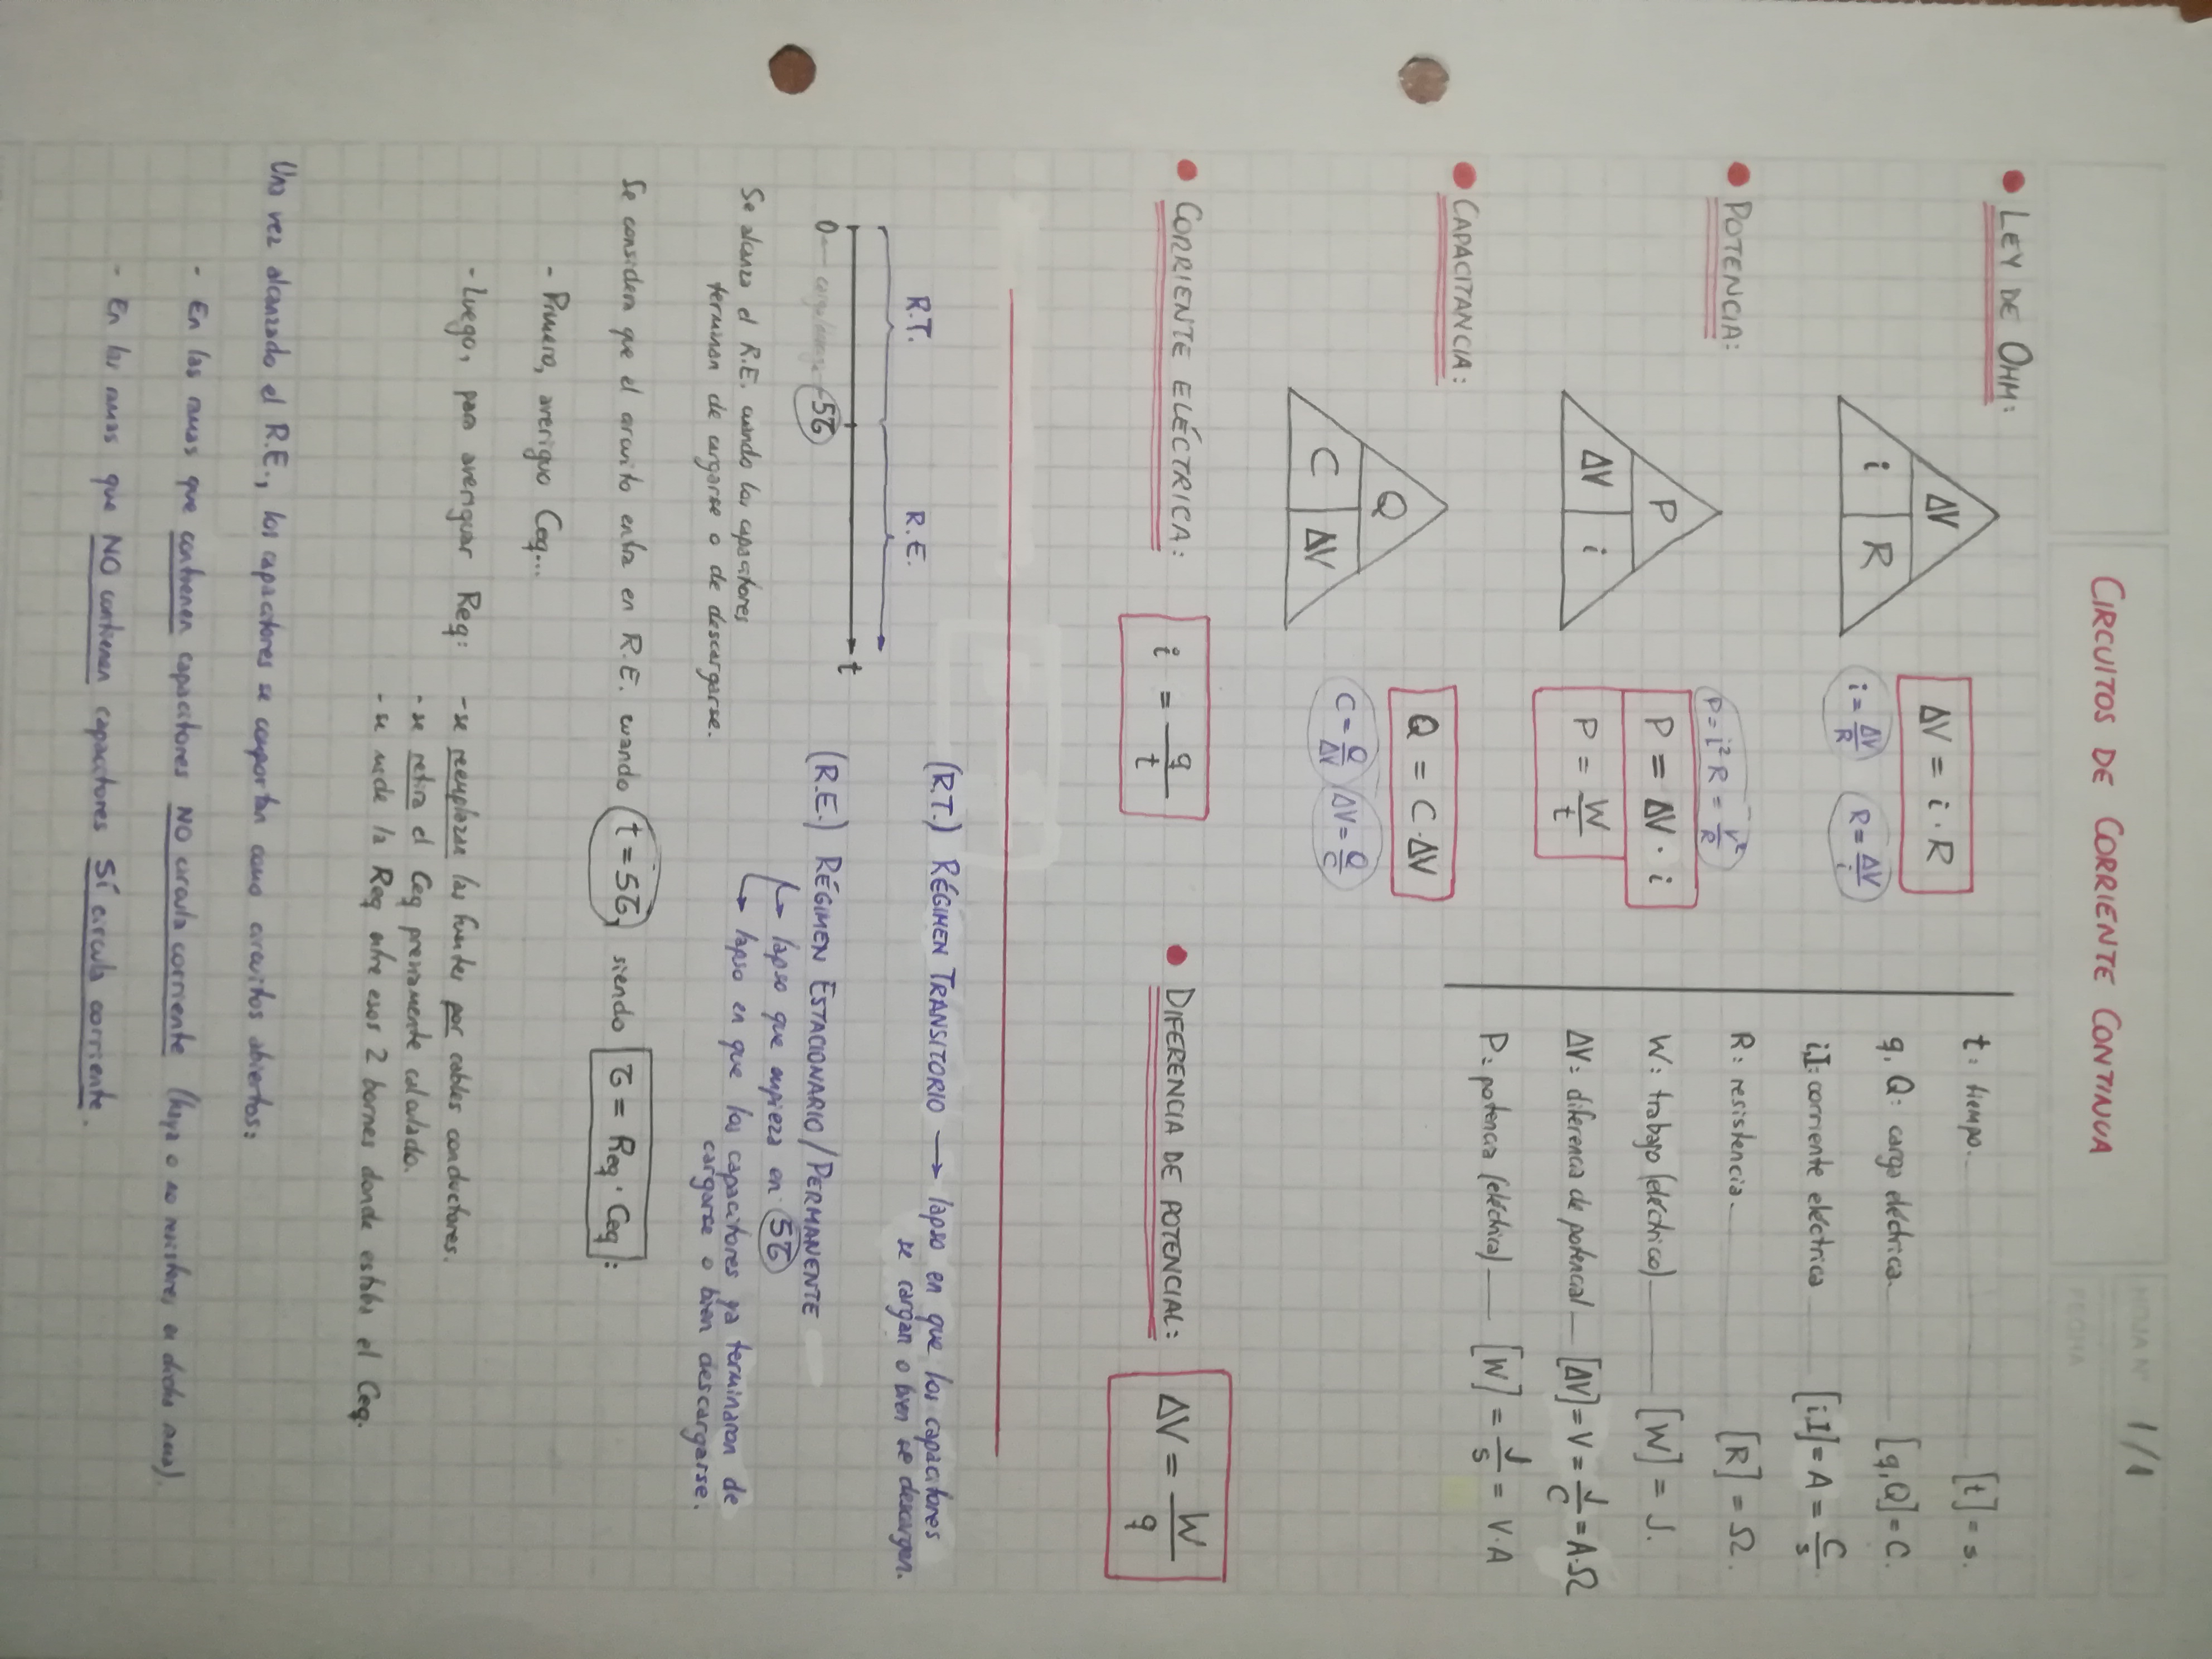 HOJA Nº 1/1
FECHA
CIRCUITOS DE CORRIENTE CONTINUA
LEY DE OHM:
ΔV
i R
ΔV = i · R
i = ΔV/R R = ΔV/i
POTENCIA:
P
ΔV i
P = i² R = V²/R
P = ΔV · i
P = W/t
CAPACITANCIA:
Q
C ΔV
Q = C·ΔV
C = Q/ΔV ΔV = Q/C
t: tiempo. [t] = s.
q, Q: carga eléctrica. [q,Q] = C.
i,I: corriente eléctrica [i,I] = A = C/s
R: resistencia. [R] = Ω.
W: trabajo (eléctrico) [W] = J.
ΔV: diferencia de potencial [ΔV] = V = J/C = A·Ω
P: potencia (eléctrica) [W] = J/s = V·A
CORRIENTE ELÉCTRICA: i = q/t
DIFERENCIA DE POTENCIAL: ΔV = W/q
R.T. R.E.
t
0 carga/descarga 5τ
Se alcanza el R.E. cuando los capacitores
terminan de cargarse o de descargarse.
(R.T.) RÉGIMEN TRANSITORIO → lapso en que los capacitores
se cargan o bien se descargan.
(R.E.) RÉGIMEN ESTACIONARIO/PERMANENTE
↳ lapso que empieza en 5τ
↳ lapso en que los capacitores ya terminaron de
cargarse o bien descargarse.
Se considera que el circuito entra en R.E. cuando t = 5τ, siendo τ = Req · Ceq:
- Primero, averiguo Ceq...
- Luego, para averiguar Req: - se reemplazan las fuentes por cables conductores.
- se retira el Ceq previamente calculado.
- se mide la Req entre esos 2 bornes donde estaba el Ceq.
Una vez alcanzado el R.E., los capacitores se comportan como circuitos abiertos:
- En las ramas que contienen capacitores NO circula corriente (haya o no resistores en dicha rama).
- En las ramas que NO contienen capacitores SÍ circula corriente.